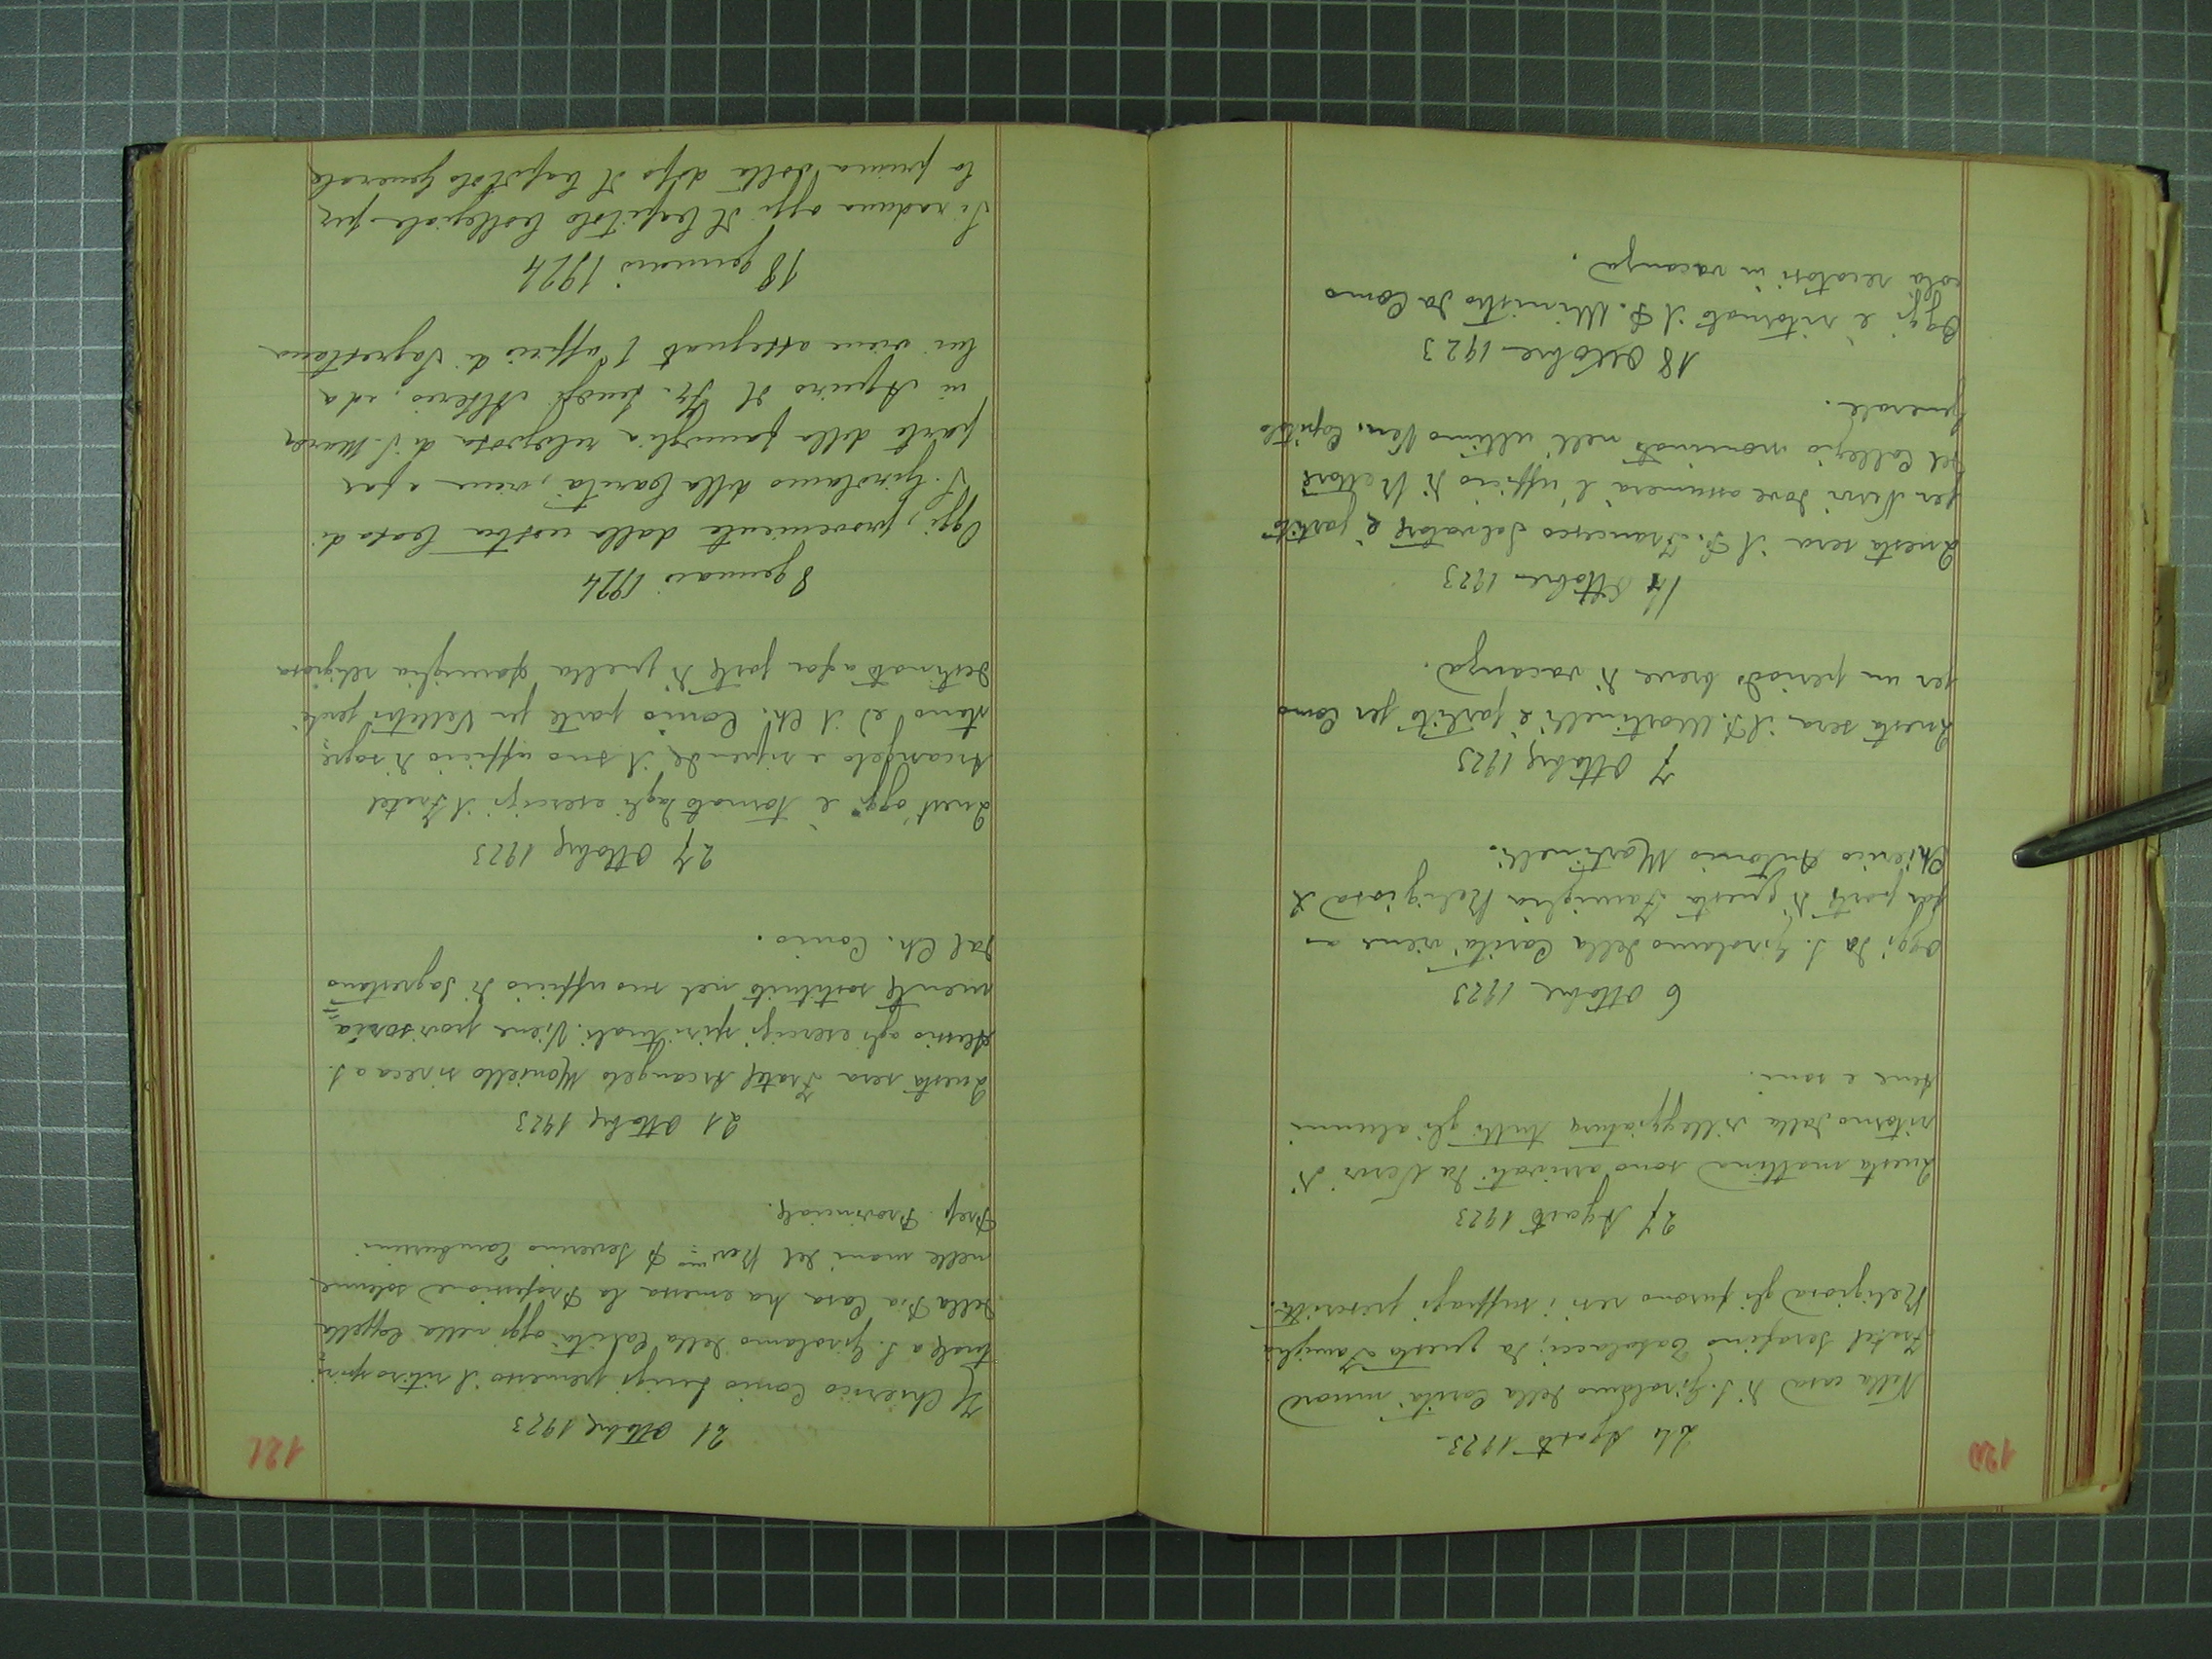 120
24 Agosto 1923.
Nella casa di S. Girolamo della Carità muore
Fratel Serafino Catolacci; da questa Famiglia
Religiosa gli furono resi i suffragi prescritti.
27 Agosto 1923
Questa mattina sono arrivati da Nervi di
ritorno dalla villeggiatura tutti gli alunni
bene e sani.
6 Ottobre 1923
Oggi da S. Girolamo della Carità viene a
far parte di questa Famiglia Religiosa il
Chierico Antonio Martinelli.
7 Ottobre 1923
Questa sera il P. Martinelli è partito per Como
per un periodo breve di vacanza.
14 Ottobre 1923
Questa sera il P. Francesco Salvatore è partito
per Nervi dove assumerà l'ufficio di Rettore
del Collegio nominato nell'ultimo Ven. Capitolo
Generale.
18 Ottobre 1923
Oggi è ritornato il P. Ministro da Como
colà recatosi in vacanza.
121
21 Ottobre 1923
Il Chierico Conio Luigi premesso il ritiro spiri
tuale a S. Girolamo della Carità oggi nella Cappella
della Pia Casa ha emessa la Professione solenne
nelle mani del Rev.mo P. Severino Tamburini
Prep. Provinciale.
21 Ottobre 1923
Questa sera Fratel Arcangelo Moniello si reca a S.
Alessio agli esercizi spirituali. Viene provvisoria=
mente sostituito nel suo ufficio di Sagrestano
dal Ch. Conio.
27 Ottobre 1923
Quest'oggi è tornato dagli esercizi il Fratel
Arcangelo e riprende il suo ufficio di sagre=
stano ed il Ch. Conio parte per Velletri perchè
destinato a far parte di quella famiglia religiosa
8 gennaio 1924
Oggi, proveniente dalla nostra Casa di
S. Girolamo della Carità, viene a far
parte della famiglia religiosa di S. Maria
in Aquiro il Fr. Luigi Alberio, ed a
lui viene assegnato l'ufficio di Sagrestano
18 gennaio 1924
Si raduna oggi il Capitolo Collegiale per
la prima volta dopo il Capitolo Generale